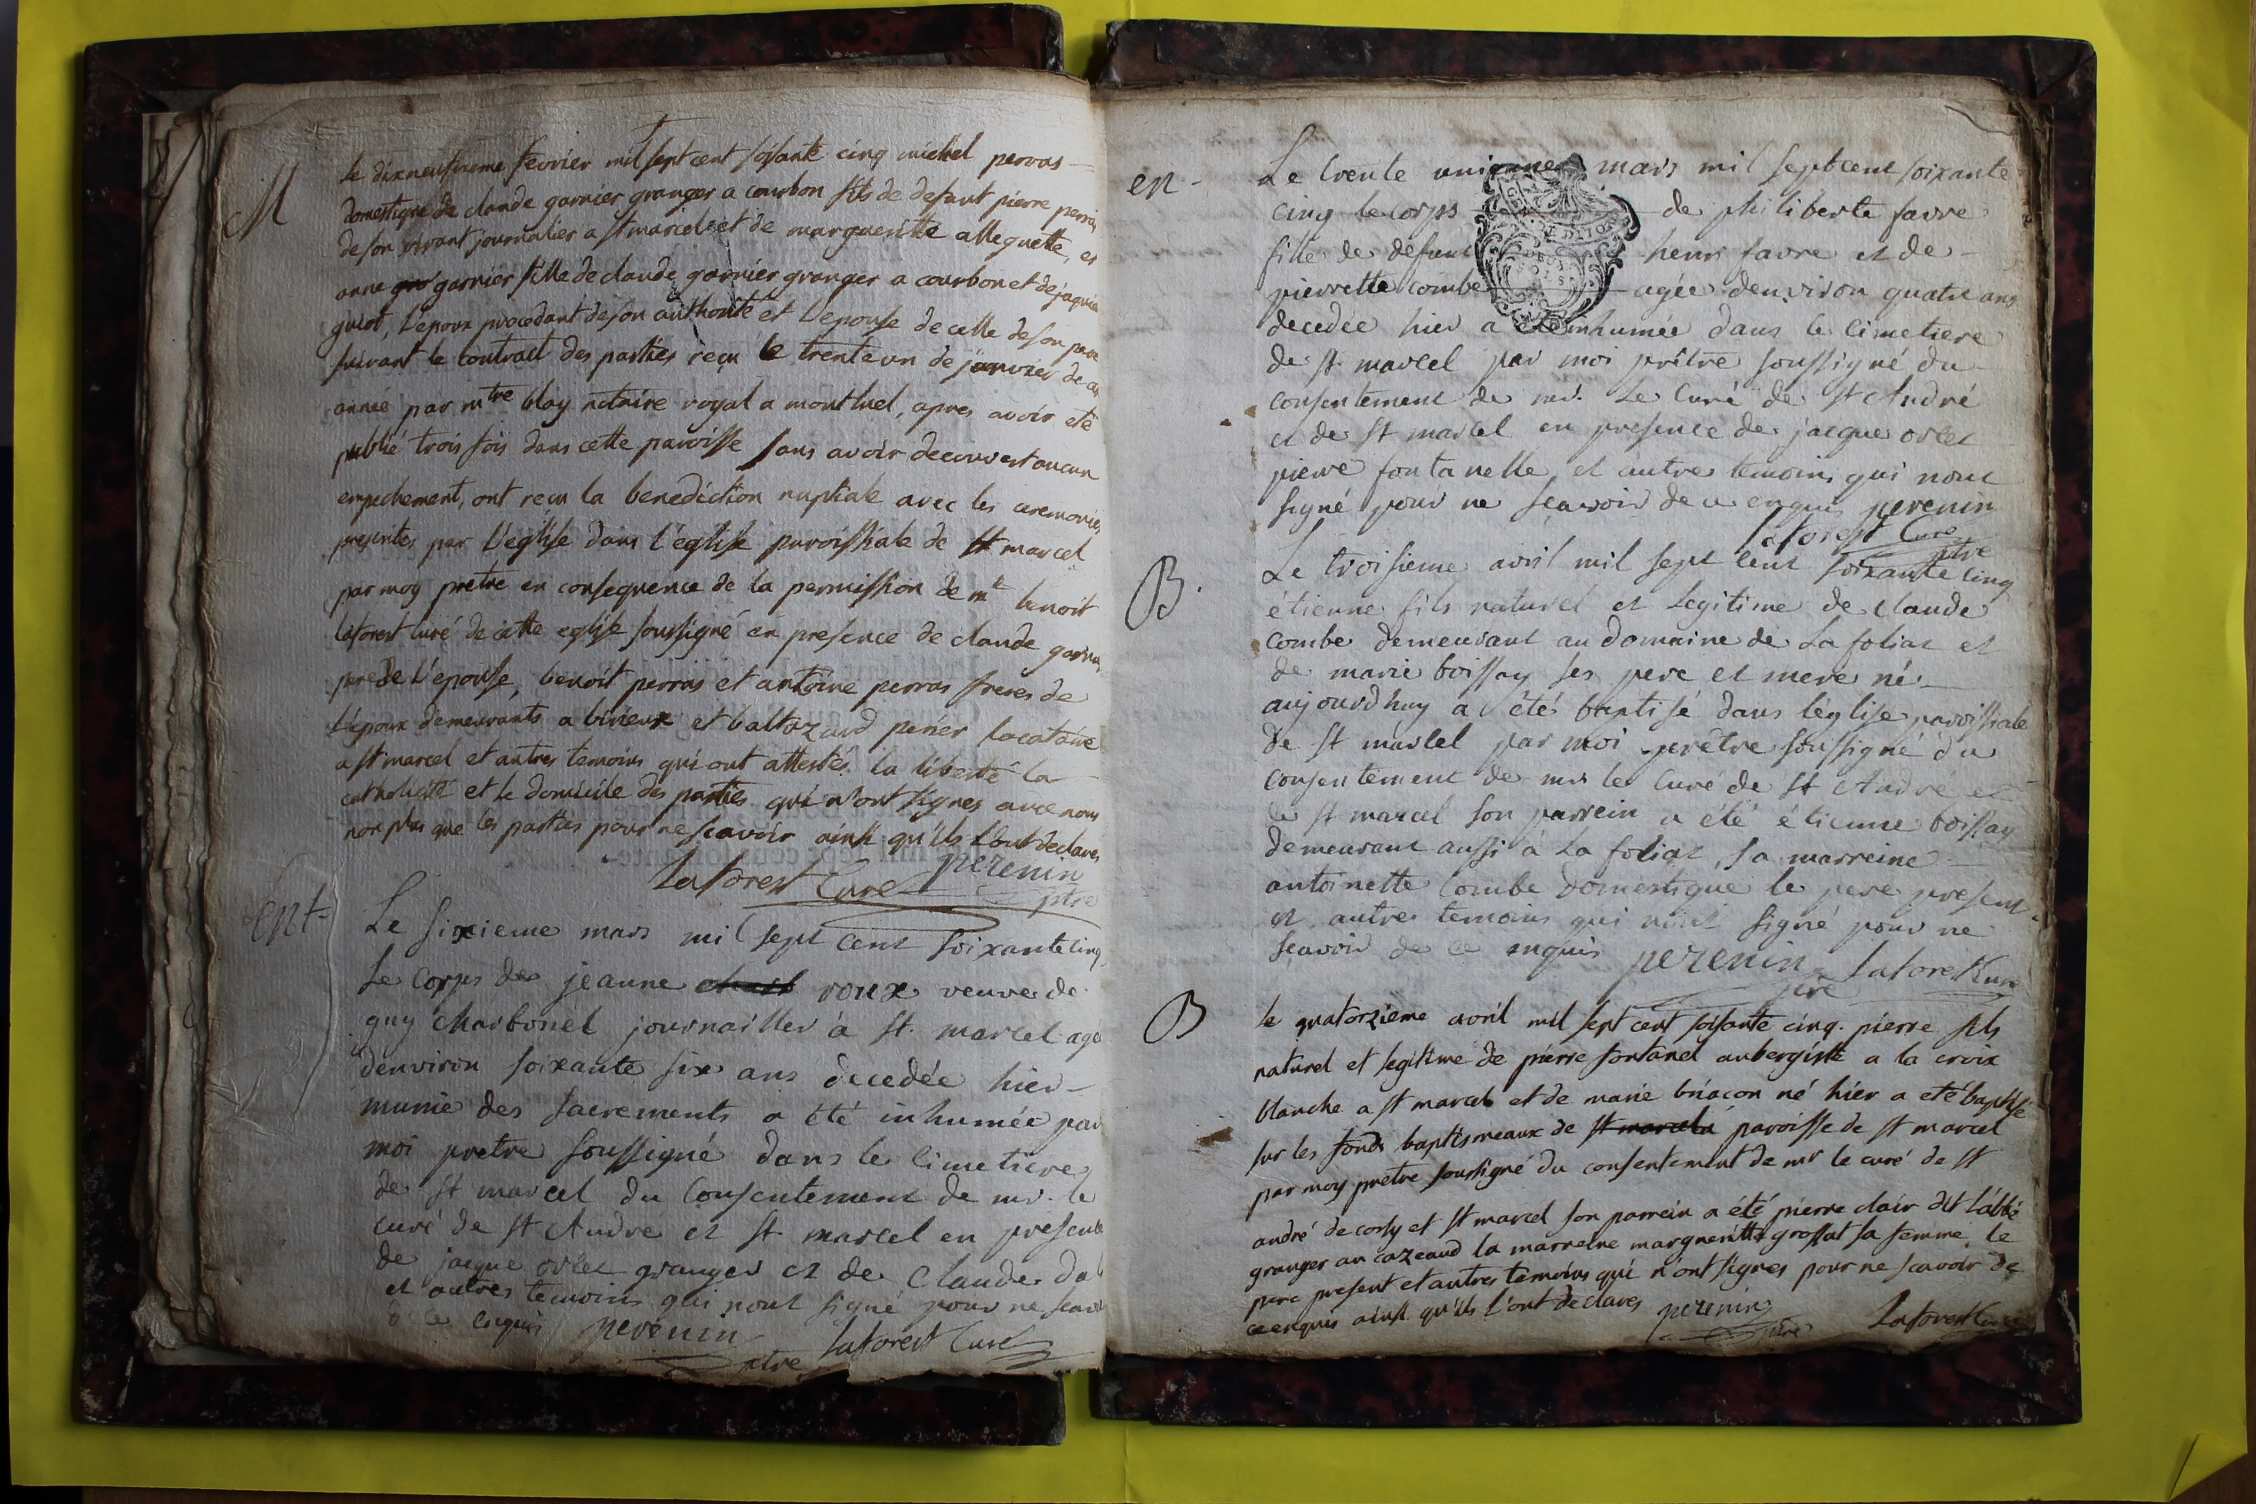 M
le dixneufvieme fevrier mil sept cent soisante cinq michel perras
domestique de claude garnier granger a courbon fils de defunt pierre perras
de son vivant journalier a st marcel et de margueritte alleguette, et
anne garnier fille de claude garnier granger a courbon et de jaquéme
guiot, L'epoux procedant de son authorité et L'epouse de celle de son pere
suivant le contract des parties reçu le trente un de janvier de
année par mtre blay notaire royal a montluel, apres avoir eté
publié trois fois dans cette paroisse sans avoir decouvert aucun
empechement, ont reçu la benediction nuptiale avec les ceremonies
prescrites par L'église dans l'église paroissiale de st marcel
par moy pretre en consequence de la permission de mr benoit
laforest curé de cette eglise soussigné en presence de claude garnier
pere de L'epouse, benoit perras et antoine perras freres de
L'époux demeurants a birieux et baltazard perier locataire
a st marcel et autres temoins qui ont attestés la liberté la
catholicité et le domicile des parties qui n'ont signés avec nous
non plus que les parties pour ne scavoir ainsi qu'ils l'ont declarés
Laforest Curé perenin
ptre
Ent
Le sixieme mars mil sept cent soixante cinq
Le corps de jeanne roux veuve de
guy charbonel journailler à st. marcel agé
denviron soixante six ans decedée hier
munie des sacrements a été inhumée par
moi pretre soussigné dans le cimetiere
de st marcel du consentement de mr. le
curé de st André et st marcel en presence
de jacque orlet granger et de Claude
et autres temoins qui nont signé pour ne scavoir
de ce enquis perenin Laforest Curé
ptre
en
Le trente unieme mars mil sept cent soixante
cinq le corps de philiberte favre
fille de defunt henri favre et de
pierrette combe agée denviron quatre ans
decedée hier a été inhumée dans le cimetiere
de st. marcel par moi prêtre soussigné du
consentement de mr. Le Curé de st André
et de st marcel en presence de jacque orlet
pierre fontanelle et autres temoins qui nont
signé pour ne sçavoir de ce enquis perenin
Laforest Curé ptre
B.
Le troisieme avril mil sept cent soixante cinq
étienne fils naturel et Legitime de claude
combe demeurant au domaine de La foliat et
de marie boissay ses pere et mere né
aujourd'huy a été baptisé dans léglise paroissiale
de st marcel par moi prêtre soussigné du
consentement de mr le Curé de st André et
de st marcel son parrein a été étienne boissay
demeurant aussi à La foliat, sa marreine
antoinette Combe domestique le pere present
et autres temoins qui n'ont signé pour ne
scavoir de ce enquis perenin Laforest Curé
ptre
B
le quatorzieme avril mil sept cent soisante cinq. pierre fils
naturel et legitime de pierre fontanel aubergiste a la croix
blanche a st marcel et de marie briacon né hier a eté baptisé
sur les fonds baptismeaux de st marcel a paroisse de st marcel
par moy pretre soussigné du consentement de mr le curé de st
andré de corcy et st marcel son parrein a été pierre clair dit L'abbé
granger au cazeaud la marreine margueritte grossat sa femme, le
pere present et autres temoins qui n'ont signés pour ne scavoir de
ce enquis ainsi qu'ils l'ont declarés perenin Laforest Curé
ptre